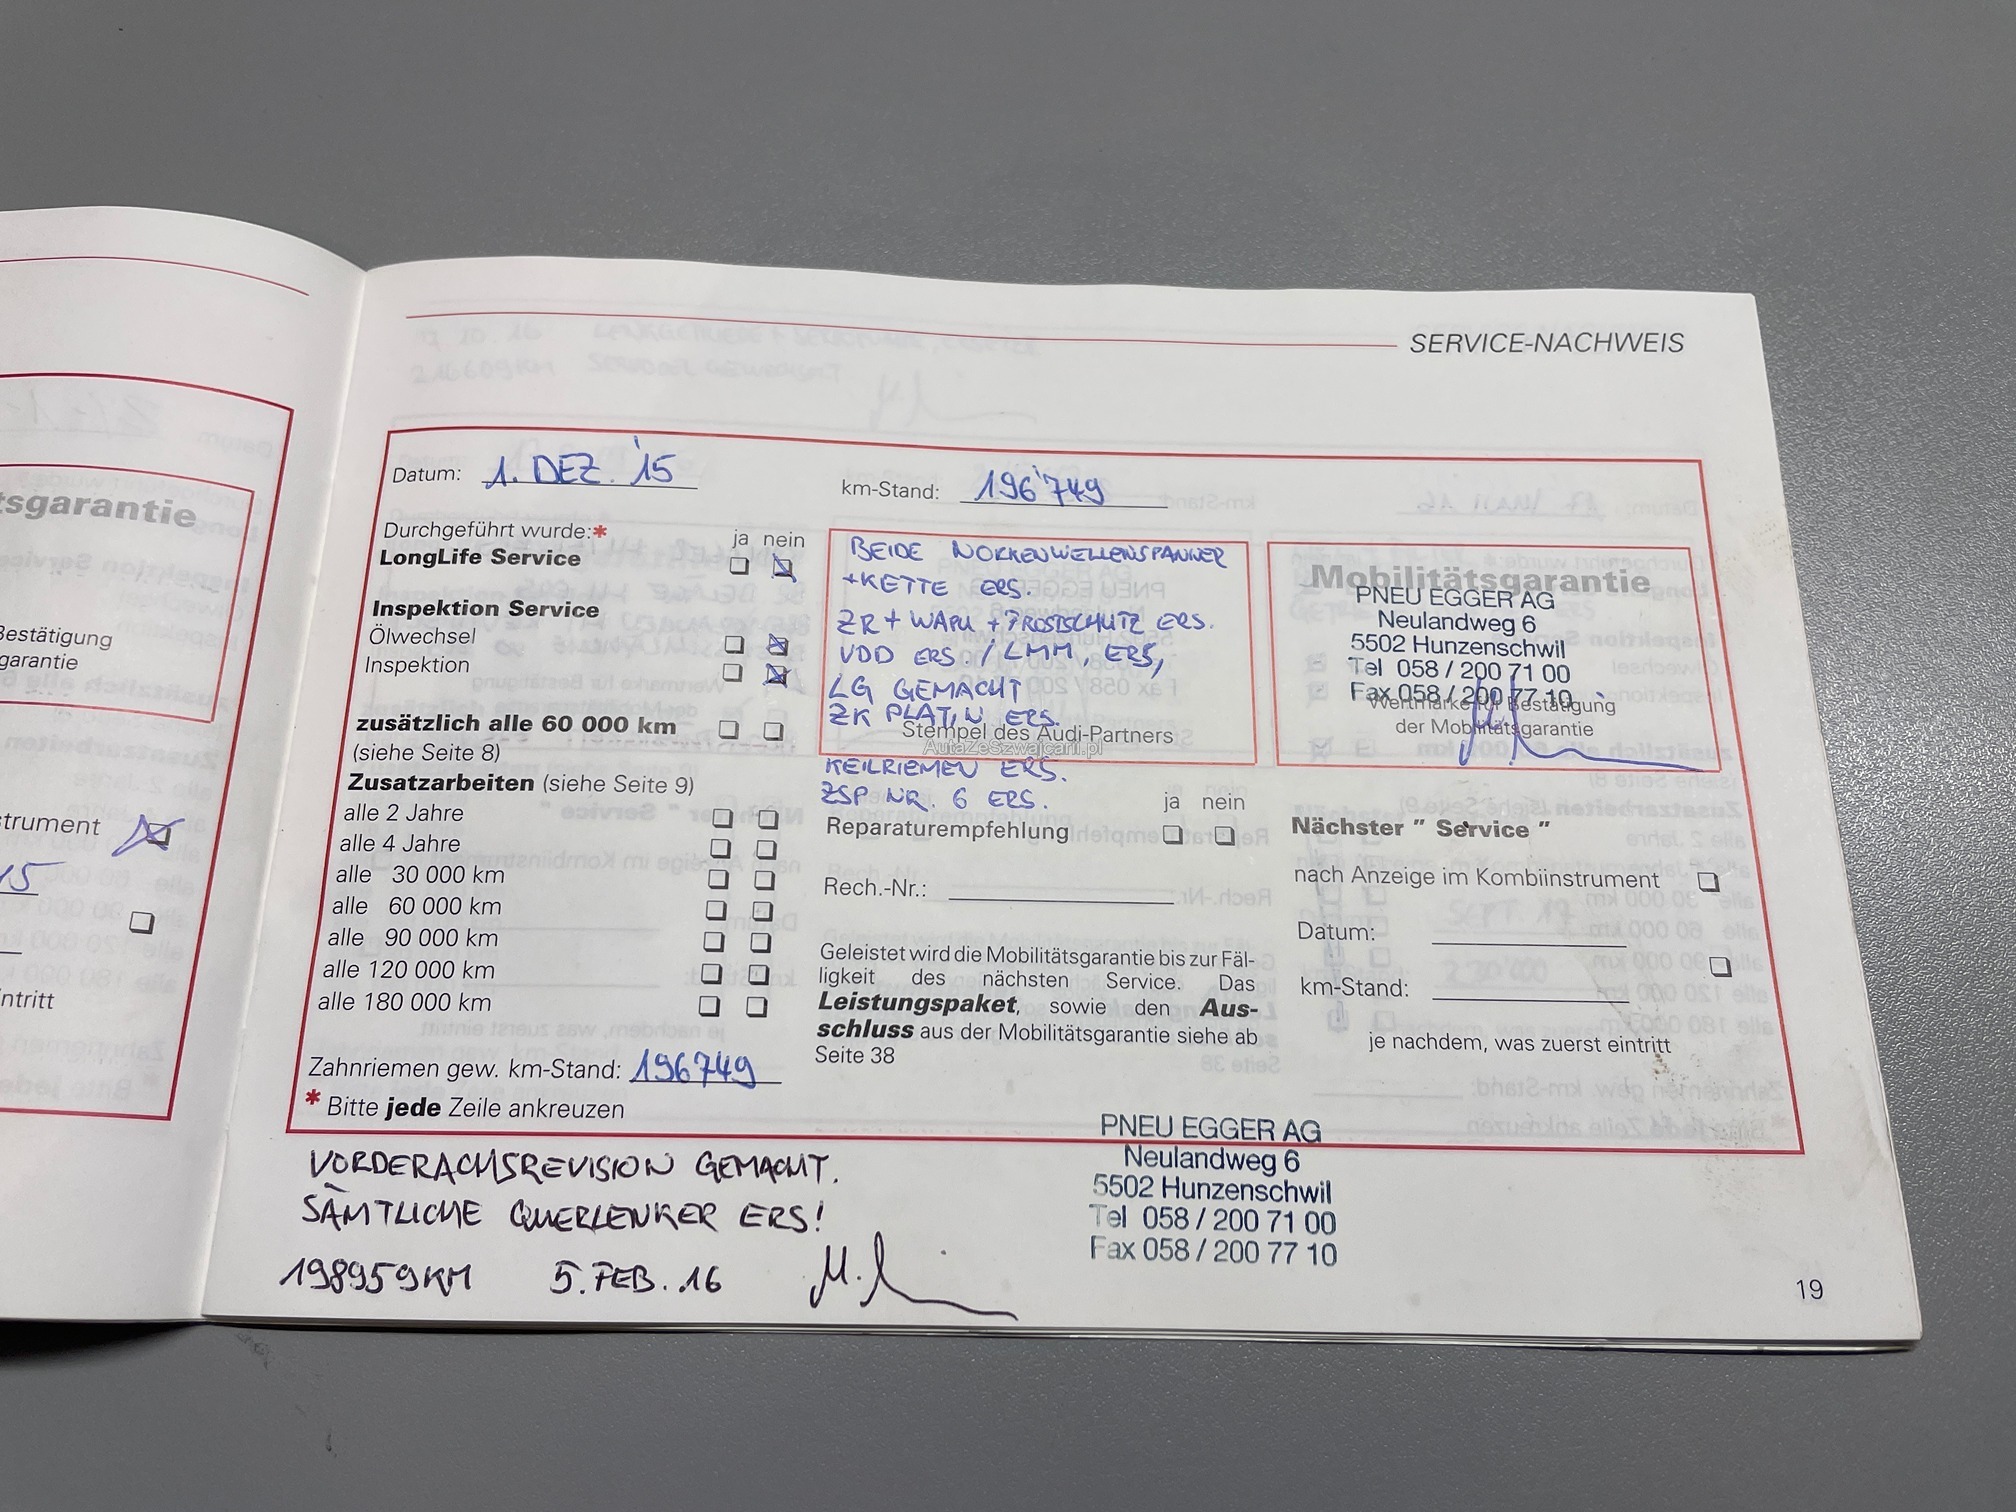 tsgarantie
Bestätigung
garantie
trument
15
ntritt
SERVICE-NACHWEIS
Datum: 1. DEZ. '15
km-Stand: 196'749
Durchgeführt wurde:* ja nein
LongLife Service
Inspektion Service
Ölwechsel
Inspektion
zusätzlich alle 60 000 km
(siehe Seite 8)
Zusatzarbeiten (siehe Seite 9)
alle 2 Jahre
alle 4 Jahre
alle 30 000 km
alle 60 000 km
alle 90 000 km
alle 120 000 km
alle 180 000 km
Zahnriemen gew. km-Stand: 196749
* Bitte jede Zeile ankreuzen
BEIDE NOKKENWELLENSPANNER
+KETTE ERS.
ZR + WAPU + FROSTSCHUTZ ERS.
VDD ERS. / LMM. ERS,
LG GEMACHT
ZK PLATIN ERS.
Stempel des Audi-Partners
AutaZeSzwajcarii.pl
KEILRIEMEN ERS.
ZSP NR. 6 ERS.
ja nein
Reparaturempfehlung
Rech.-Nr.:
Geleistet wird die Mobilitätsgarantie bis zur Fäl-
ligkeit des nächsten Service. Das
Leistungspaket, sowie den Aus-
schluss aus der Mobilitätsgarantie siehe ab
Seite 38
Mobilitätsgarantie
PNEU EGGER AG
Neulandweg 6
5502 Hunzenschwil
Tel 058 / 200 71 00
Fax 058 / 200 77 10
Wertmarke für Bestätigung
der Mobilitätsgarantie
Nächster " Service "
nach Anzeige im Kombiinstrument
Datum:
km-Stand:
je nachdem, was zuerst eintritt
VORDERACHSREVISION GEMACHT.
SÄMTLICHE QUERLENKER ERS!
198959KM 5. FEB. 16
PNEU EGGER AG
Neulandweg 6
5502 Hunzenschwil
Tel 058 / 200 71 00
Fax 058 / 200 77 10
19